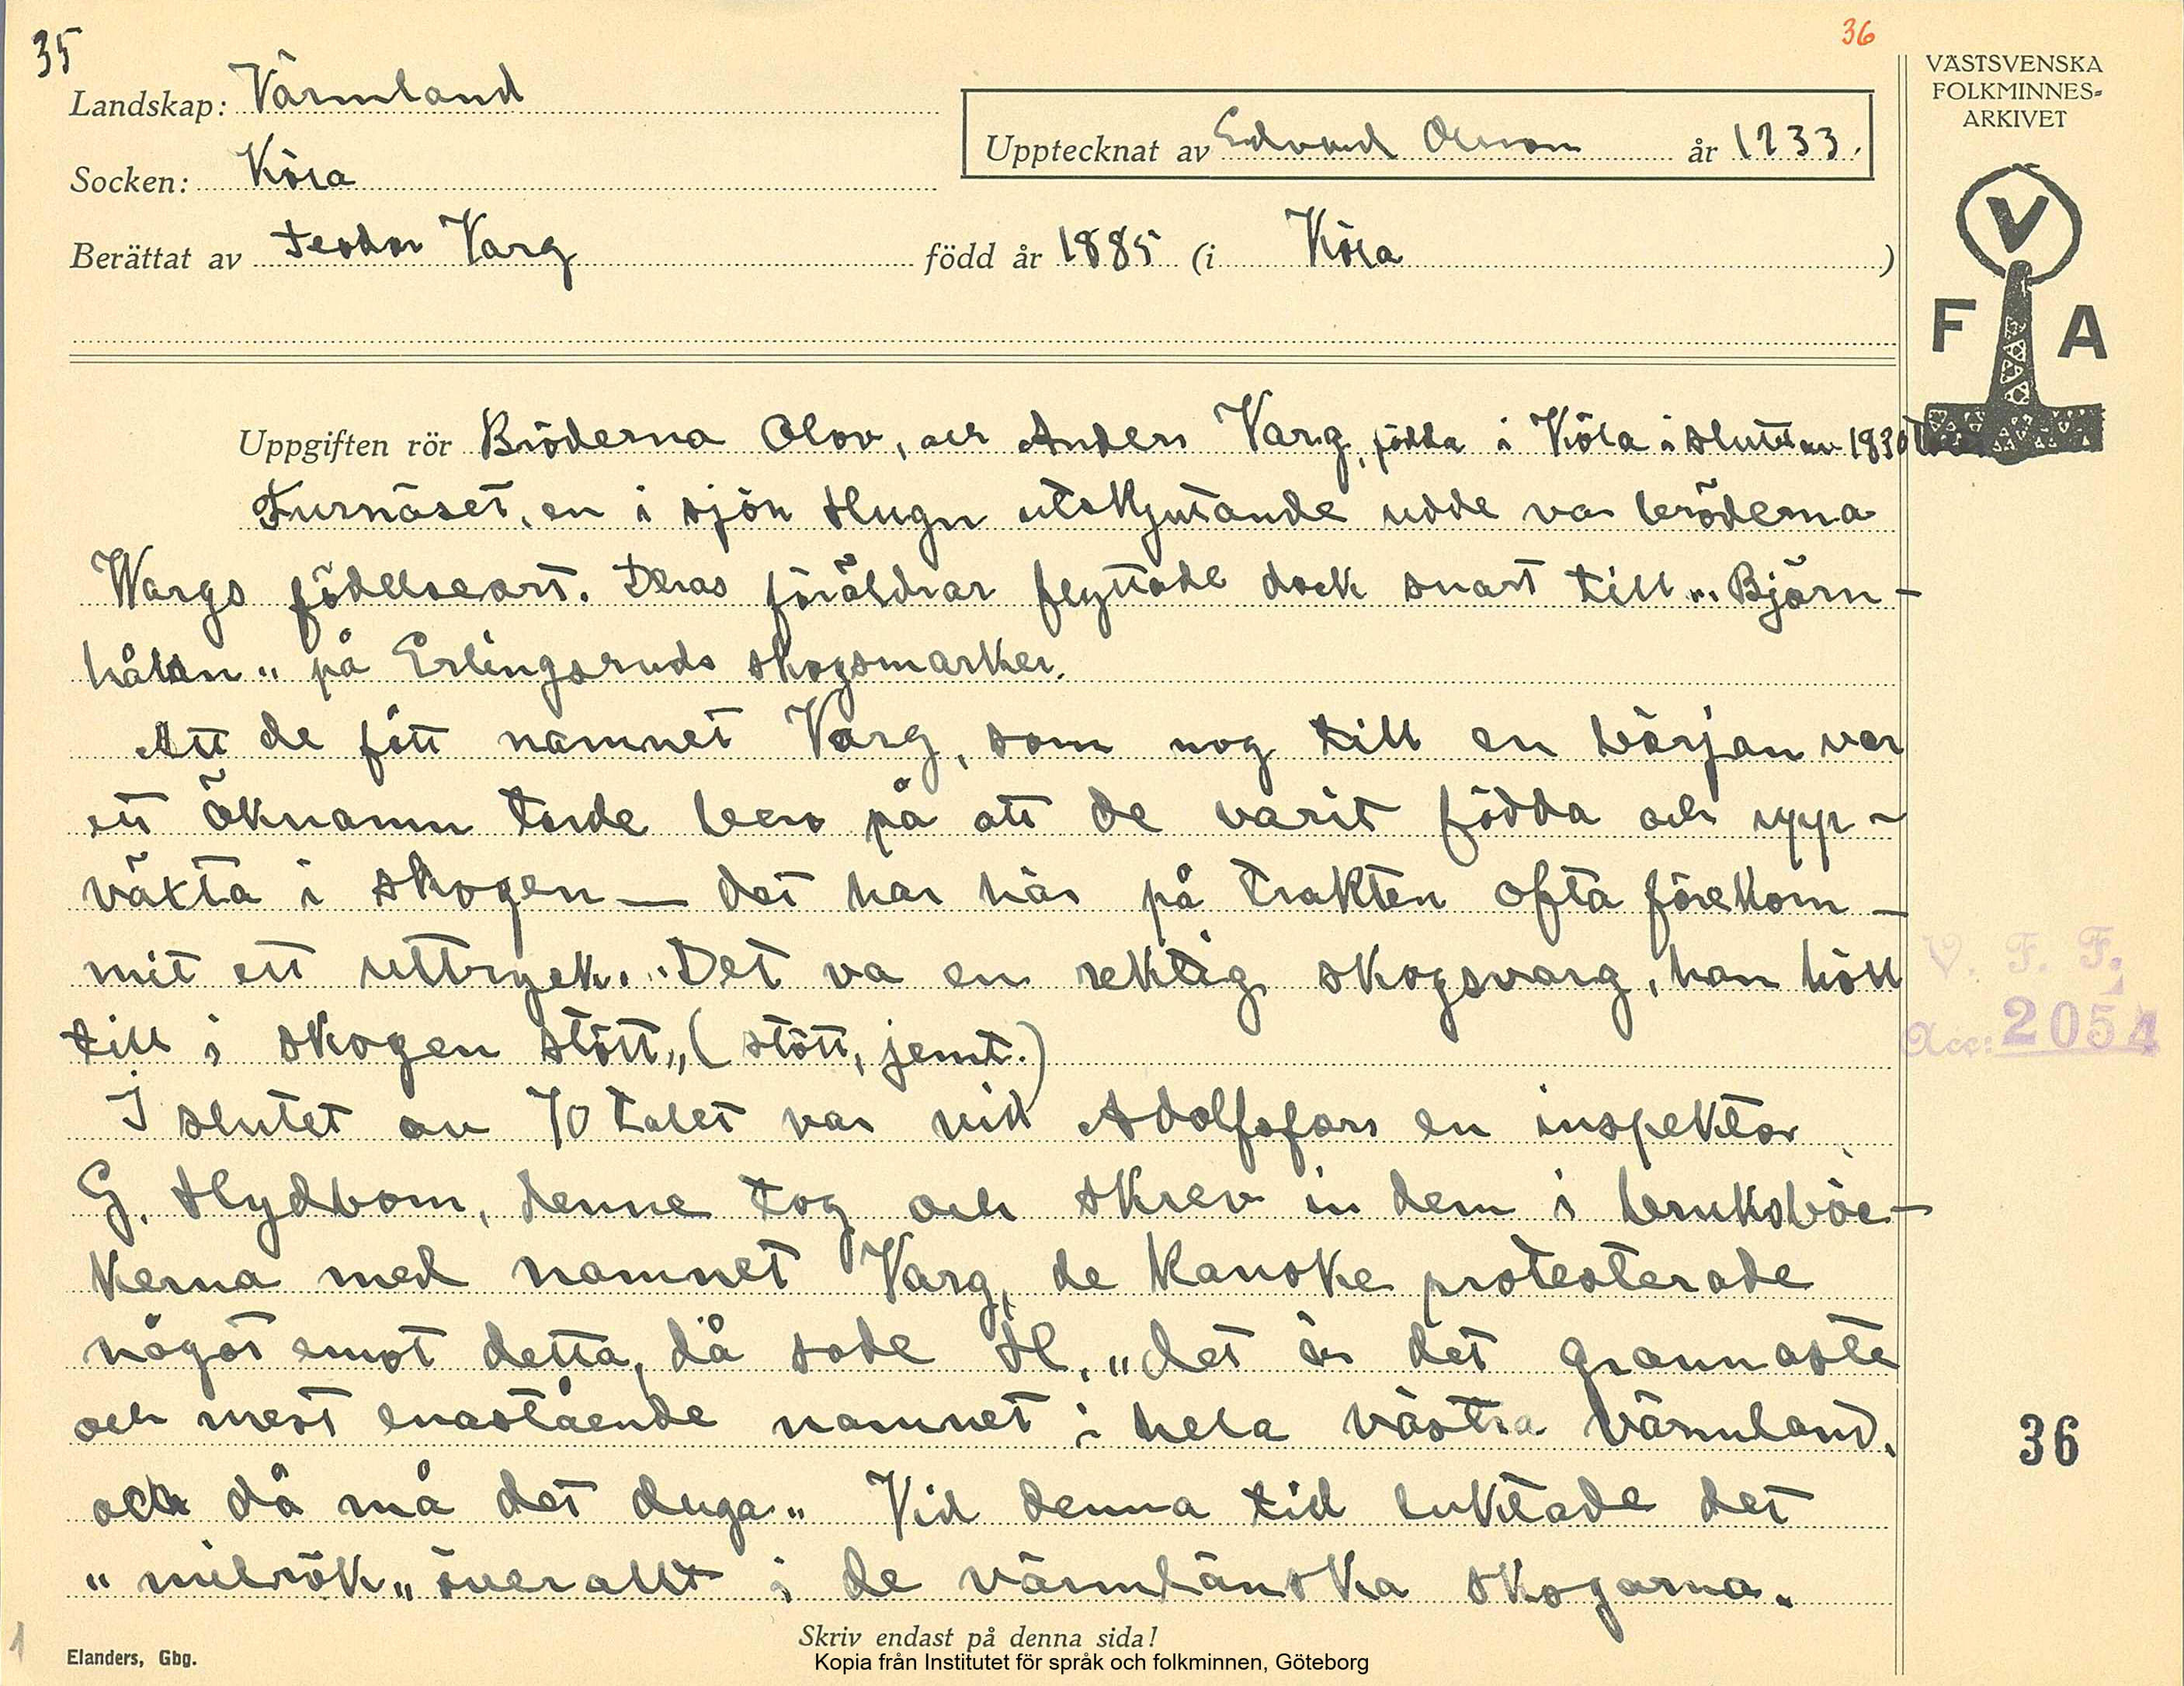 35
36
Landskap: Värmland
Socken: Köla
Upptecknat av Edvard Olsson år 1933.
Berättat av Teodor Varg född år 1885 (i Köla)
VÄSTSVENSKA
FOLKMINNES-
ARKIVET
V
F A
Uppgiften rör Bröderna Olov, och Anders Varg, födda i Köla i slutet av 1830 t
Furnäset, en i sjön Hugn utskjutande udde var bröderna
Wargs födelseort. Deras föräldrar flyttade dock snart till "Björn-
hålan" på Erlingsruds skogsmarker.
Att de fått namnet Varg, som nog till en början var
ett öknamn torde bero på att de varit födda och upp-
växta i skogen — det har här på trakten ofta förekom-
mit ett uttryck. "Det va en rektig skogsvarg, han höll
till i skogen stött" (stött, jemt.)
I slutet av 70 talet var vid Adolfsfors en inspektor
G. Hydbom, denne tog och skrev in dem i bruksböc-
kerna med namnet Varg, de kanske protesterade
något emot detta, då sade H. "det är det grannaste
och mest enastående namnet i hela västra Värmland,
och då må det duga" Vid denna tid luktade det
"milrök" överallt i de värmländska skogarna.
V. F. F.
Acc: 2054
36
1
Skriv endast på denna sida!
Elanders, Gbg.
Kopia från Institutet för språk och folkminnen, Göteborg